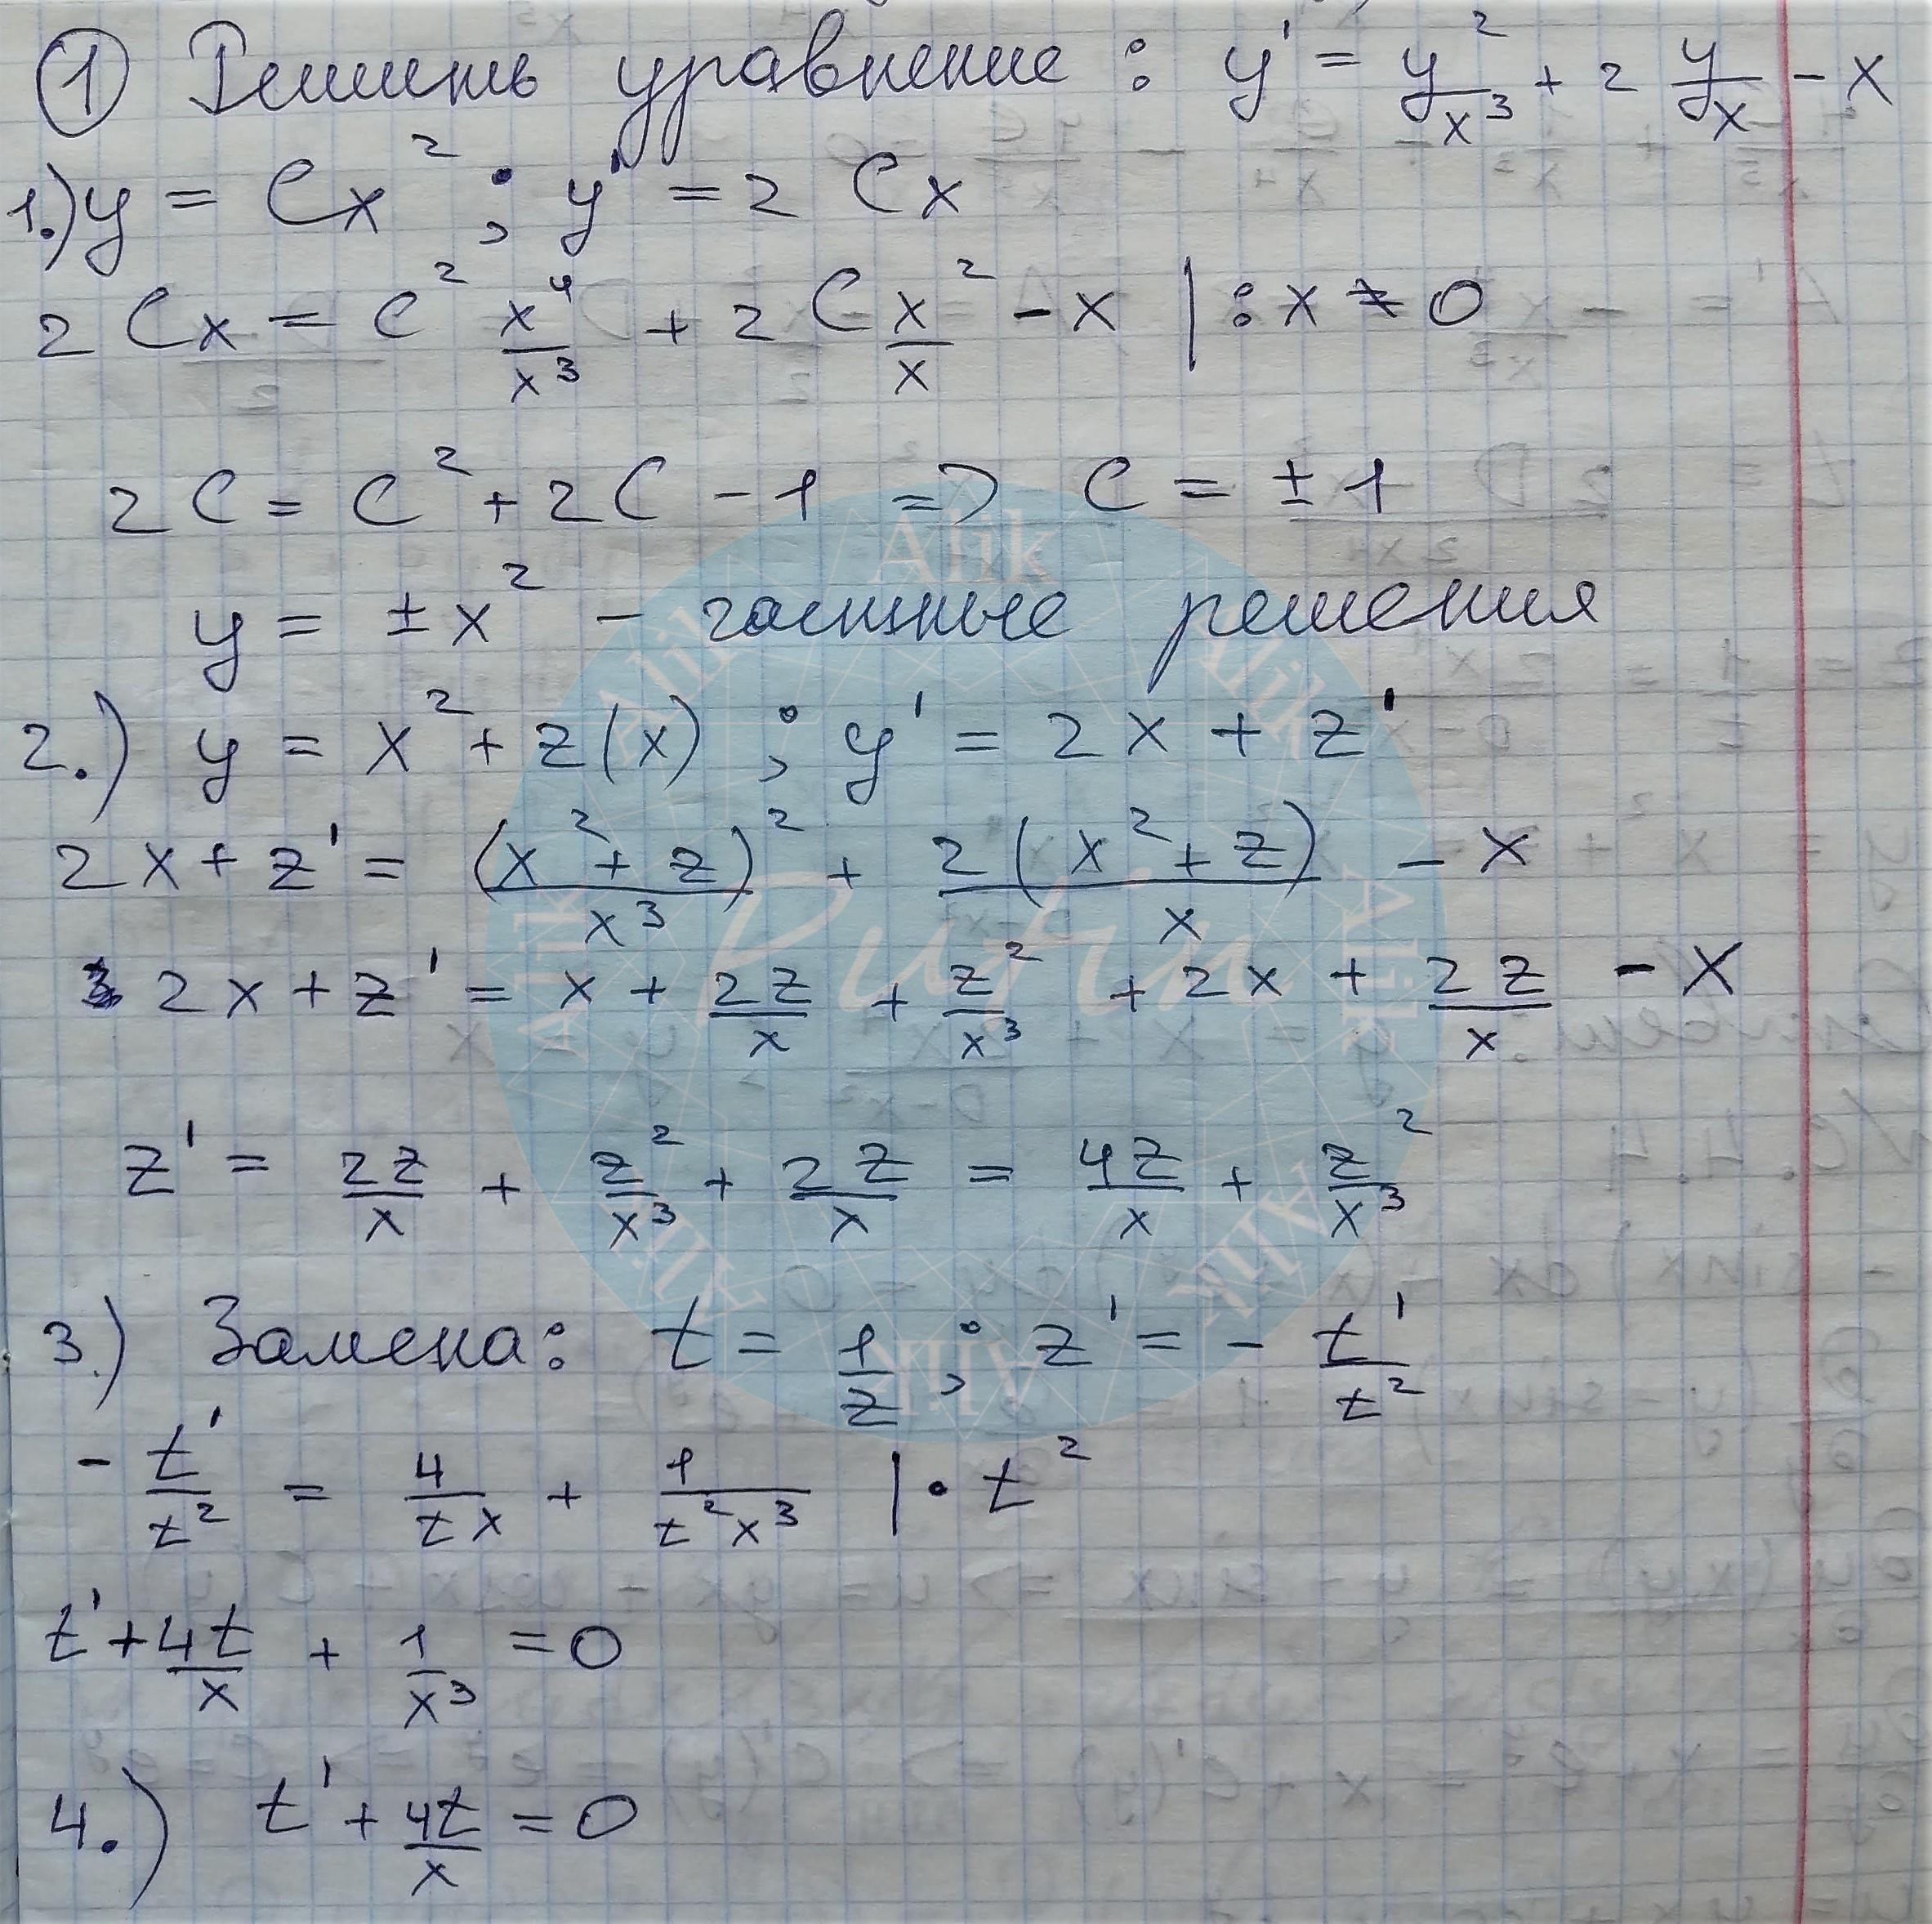 ① Решить уравнение : y' = y²/x³ + 2 y/x - x
1.) y = Cx² ; y' = 2 Cx
2 Cx = C² x⁴/x³ + 2 C x²/x - x | : x ≠ 0
2C = C² + 2C - 1 => C = ± 1
y = ± x² - частные решения
2.) y = x² + z(x) ; y' = 2x + z'
2x + z' = (x² + z)²/x³ + 2(x² + z)/x - x
2x + z' = x + 2z/x + z²/x³ + 2x + 2z/x - x
z' = 2z/x + z²/x³ + 2z/x = 4z/x + z²/x³
3.) Замена: t = 1/z ; z' = - t'/t²
- t'/t² = 4/tx + 1/t²x³ | · t²
t' + 4t/x + 1/x³ = 0
4.) t' + 4t/x = 0
Alik
Alik
Alik
Alik
Alik
Alik
Alik
Alik
Putin